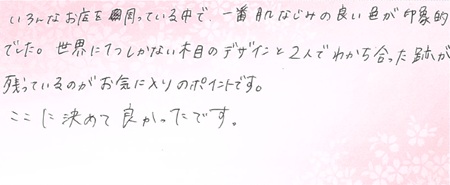 いろんなお店を周っている中で、一番肌なじみの良い色が印象的
でした。世界に1つしかない木目のデザインと2人でわかち合った跡が
残っているのがお気に入りのポイントです。
ここに決めて良かったです。